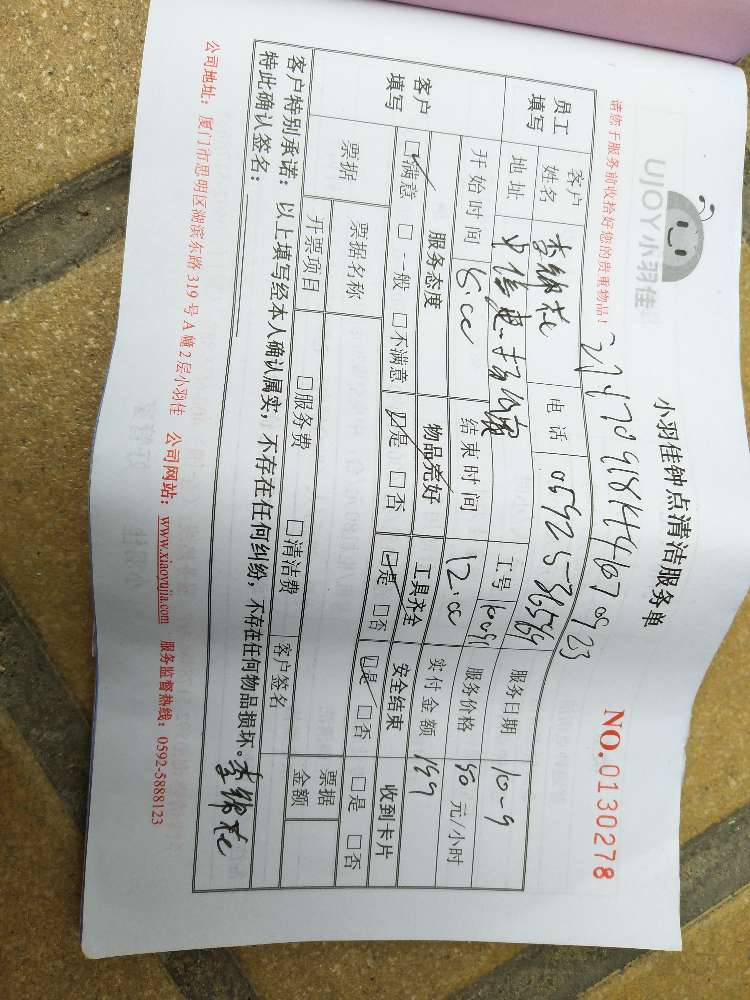 UJOY小羽佳
小羽佳钟点清洁服务单
NO.0130278
请您于服务前收拾好您的贵重物品！
员工填写 客户姓名 电话 服务日期 10-9
地址 工号 服务价格 元/小时
开始时间 8:00 结束时间 12:00 实付金额 199
客户填写 服务态度 物品完好 工具齐全 安全结束 收到卡片
□满意 □一般 □不满意 □是 □否 □是 □否 □是 □否 □是 □否
票据 票据名称 客户签名 票据金额
开票项目 □服务费 □清洁费
客户特别承诺：以上填写经本人确认属实，不存在任何纠纷，不存在任何物品损坏。
特此确认签名：
公司地址：厦门市思明区湖滨东路319号A幢2层小羽佳 公司网站：www.xiaoyujia.com 服务监督热线：0592-5888123